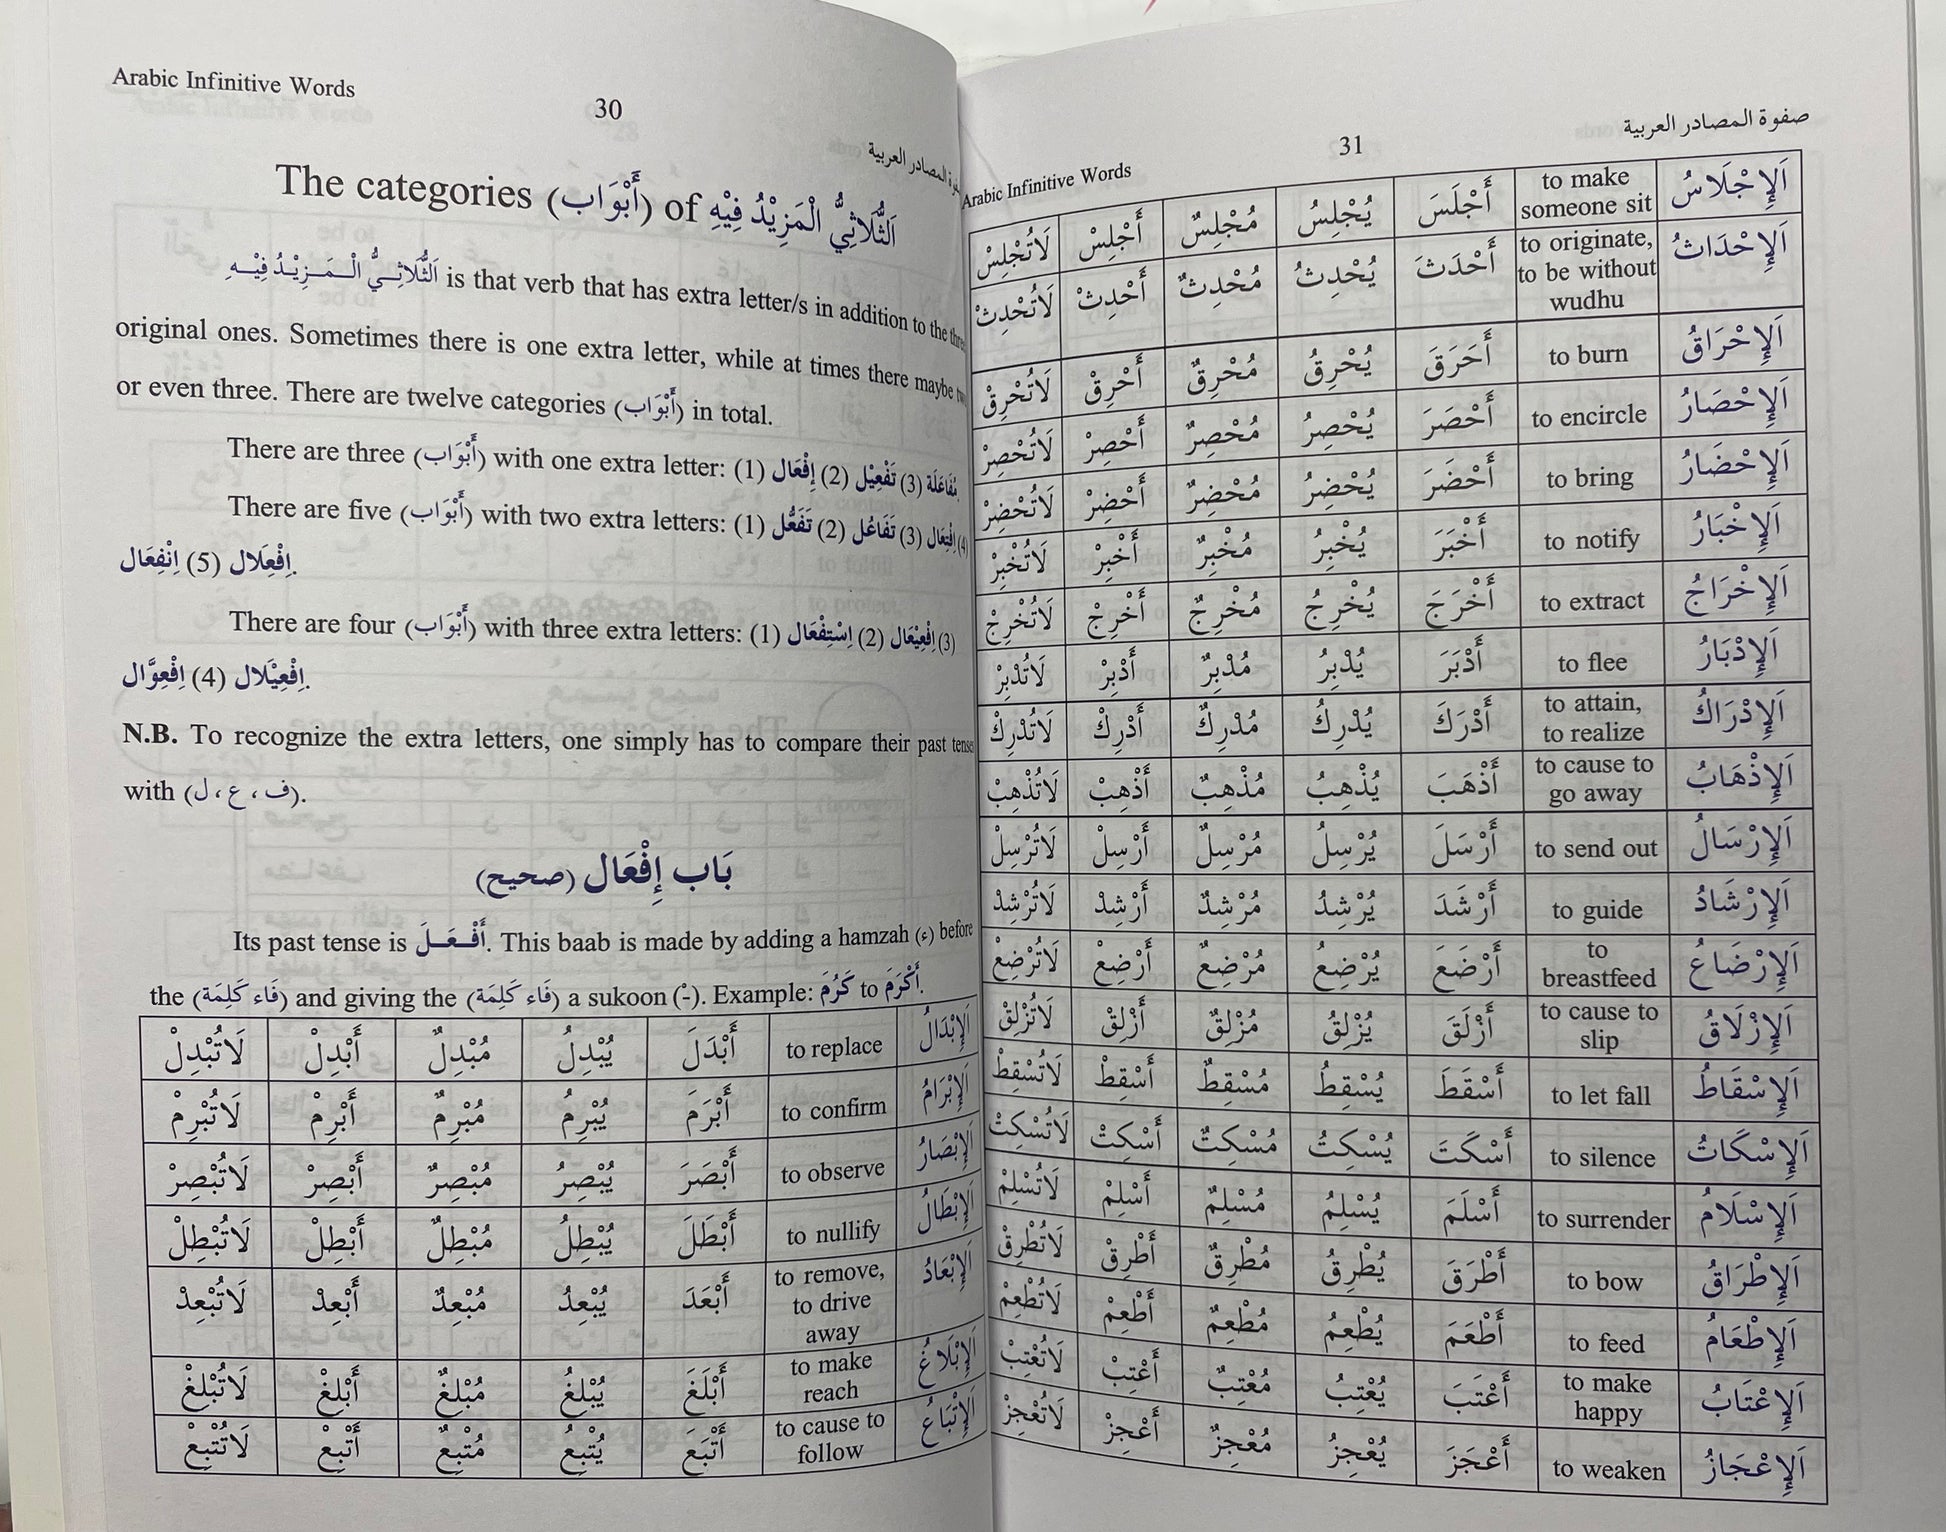 Arabic Infinitive Words
30
صفوة المصادر العربية
The categories (أَبْوَاب) of اَلثُّلَاثِيُّ الْمَزِيْدُ فِيْهِ
اَلثُّلَاثِـيُّ الْـمَـزِيْـدُ فِيْـهِ is that verb that has extra letter/s in addition to the three
original ones. Sometimes there is one extra letter, while at times there maybe two
or even three. There are twelve categories (أَبْوَاب) in total.
There are three (أَبْوَاب) with one extra letter: (1) إِفْعَال (2) تَفْعِيْل (3) مُفَاعَلَة.
There are five (أَبْوَاب) with two extra letters: (1) تَفَعُّل (2) تَفَاعُل (3) اِفْتِعَال (4)
اِنْفِعَال (5) اِفْعِلَال.
There are four (أَبْوَاب) with three extra letters: (1) اِسْتِفْعَال (2) اِفْعِيْعَال (3)
اِفْعِوَّال (4) اِفْعِيْلَال.
N.B. To recognize the extra letters, one simply has to compare their past tense
with (ف ، ع ، ل).
بَاب إِفْعَال (صحيح)
Its past tense is أَفْـعَـلَ. This baab is made by adding a hamzah (ء) before
the (فَاء كَلِمَة) and giving the (فَاء كَلِمَة) a sukoon (ـْ). Example: كَرُمَ to أَكْرَمَ.
اَلإِبْدَالُ to replace أَبْدَلَ يُبْدِلُ مُبْدِلٌ أَبْدِلْ لَاتُبْدِلْ
اَلإِبْرَامُ to confirm أَبْرَمَ يُبْرِمُ مُبْرِمٌ أَبْرِمْ لَاتُبْرِمْ
اَلإِبْصَارُ to observe أَبْصَرَ يُبْصِرُ مُبْصِرٌ أَبْصِرْ لَاتُبْصِرْ
اَلإِبْطَالُ to nullify أَبْطَلَ يُبْطِلُ مُبْطِلٌ أَبْطِلْ لَاتُبْطِلْ
اَلإِبْعَادُ to remove, to drive away أَبْعَدَ يُبْعِدُ مُبْعِدٌ أَبْعِدْ لَاتُبْعِدْ
اَلإِبْلَاغُ to make reach أَبْلَغَ يُبْلِغُ مُبْلِغٌ أَبْلِغْ لَاتُبْلِغْ
اَلإِتْبَاعُ to cause to follow أَتْبَعَ يُتْبِعُ مُتْبِعٌ أَتْبِعْ لَاتُتْبِعْ
Arabic Infinitive Words
31
صفوة المصادر العربية
اَلإِجْلَاسُ to make someone sit أَجْلَسَ يُجْلِسُ مُجْلِسٌ أَجْلِسْ لَاتُجْلِسْ
اَلإِحْدَاثُ to originate, to be without wudhu أَحْدَثَ يُحْدِثُ مُحْدِثٌ أَحْدِثْ لَاتُحْدِثْ
اَلإِحْرَاقُ to burn أَحَرَقَ يُحْرِقُ مُحْرِقٌ أَحْرِقْ لَاتُحْرِقْ
اَلإِحْصَارُ to encircle أَحْصَرَ يُحْصِرُ مُحْصِرٌ أَحْصِرْ لَاتُحْصِرْ
اَلإِحْضَارُ to bring أَحْضَرَ يُحْضِرُ مُحْضِرٌ أَحْضِرْ لَاتُحْضِرْ
اَلإِخْبَارُ to notify أَخْبَرَ يُخْبِرُ مُخْبِرٌ أَخْبِرْ لَاتُخْبِرْ
اَلإِخْرَاجُ to extract أَخْرَجَ يُخْرِجُ مُخْرِجٌ أَخْرِجْ لَاتُخْرِجْ
اَلإِدْبَارُ to flee أَدْبَرَ يُدْبِرُ مُدْبِرٌ أَدْبِرْ لَاتُدْبِرْ
اَلإِدْرَاكُ to attain, to realize أَدْرَكَ يُدْرِكُ مُدْرِكٌ أَدْرِكْ لَاتُدْرِكْ
اَلإِذْهَابُ to cause to go away أَذْهَبَ يُذْهِبُ مُذْهِبٌ أَذْهِبْ لَاتُذْهِبْ
اَلإِرْسَالُ to send out أَرْسَلَ يُرْسِلُ مُرْسِلٌ أَرْسِلْ لَاتُرْسِلْ
اَلإِرْشَادُ to guide أَرْشَدَ يُرْشِدُ مُرْشِدٌ أَرْشِدْ لَاتُرْشِدْ
اَلإِرْضَاعُ to breastfeed أَرْضَعَ يُرْضِعُ مُرْضِعٌ أَرْضِعْ لَاتُرْضِعْ
اَلإِزْلَاقُ to cause to slip أَزْلَقَ يُزْلِقُ مُزْلِقٌ أَزْلِقْ لَاتُزْلِقْ
اَلإِسْقَاطُ to let fall أَسْقَطَ يُسْقِطُ مُسْقِطٌ أَسْقِطْ لَاتُسْقِطْ
اَلإِسْكَاتُ to silence أَسْكَتَ يُسْكِتُ مُسْكِتٌ أَسْكِتْ لَاتُسْكِتْ
اَلإِسْلَامُ to surrender أَسْلَمَ يُسْلِمُ مُسْلِمٌ أَسْلِمْ لَاتُسْلِمْ
اَلإِطْرَاقُ to bow أَطْرَقَ يُطْرِقُ مُطْرِقٌ أَطْرِقْ لَاتُطْرِقْ
اَلإِطْعَامُ to feed أَطْعَمَ يُطْعِمُ مُطْعِمٌ أَطْعِمْ لَاتُطْعِمْ
اَلإِعْتَابُ to make happy أَعْتَبَ يُعْتِبُ مُعْتِبٌ أَعْتِبْ لَاتُعْتِبْ
اَلإِعْجَازُ to weaken أَعْجَزَ يُعْجِزُ مُعْجِزٌ أَعْجِزْ لَاتُعْجِزْ